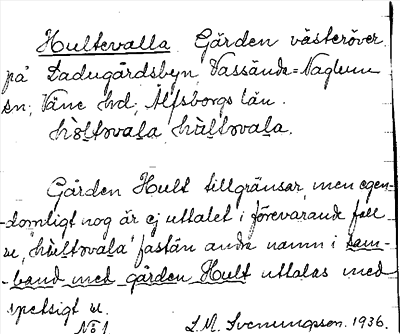 Hultevalla. Gärden västeröver
på Ladugårdsbyn, Vassända=Naglum
sn; Väne hd, Älfsborgs län.
hùl̥təval̥a
Gården Hult tillgränsar, men egen-
-domligt nog är ej uttalet i förevarande fall
u, 'fastän andra namn i sam-
-band med gården Hult uttalas med
spetsigt u.
No 1
S.M. Svenungson. 1936.